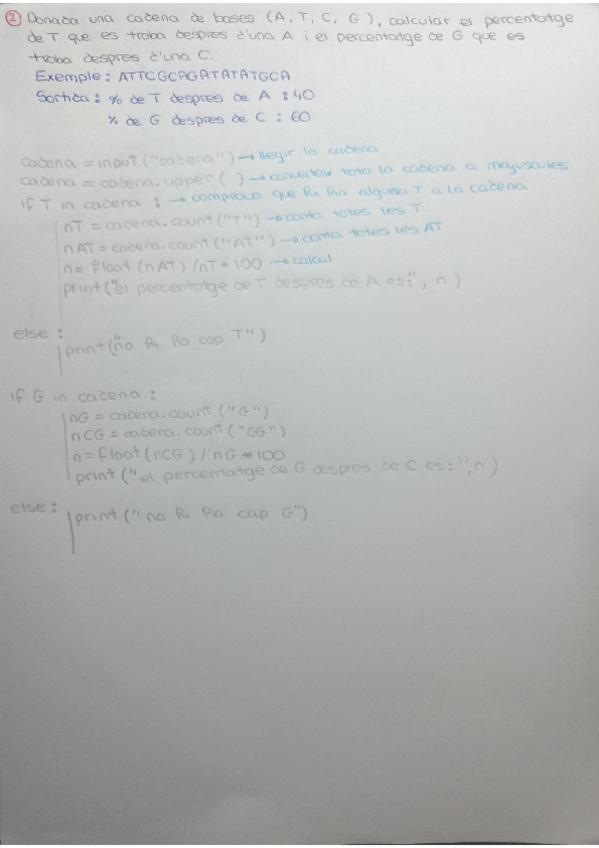 2 Donada una cadena de bases (A, T, C, G), calcular el percentatge
de T que es troba despres d'una A i el percentatge de G que es
troba despres d'una C.
Exemple: ATTCGCAGATATATGCA
Sortida: % de T despres de A : 40
% de G despres de C : 60
cadena = input("cadena") → llegir la cadena
cadena = cadena.upper( ) → convertir tota la cadena a mayuscules.
if T in cadena : → comprova que hi ha alguna T a la cadena
nT = cadena.count("T") → conta totes les T
nAT = cadena.count("AT") → conta totes les AT
n = float(nAT)/nT * 100 → calcul
print("el percentatge de T despres de A es:", n)
else :
print("no hi ha cap T")
if G in cadena :
nG = cadena.count("G")
nCG = cadena.count("CG")
n = float(nCG)/nG * 100
print("el percentatge de G despres de C es:", n)
else :
print("no hi ha cap G")